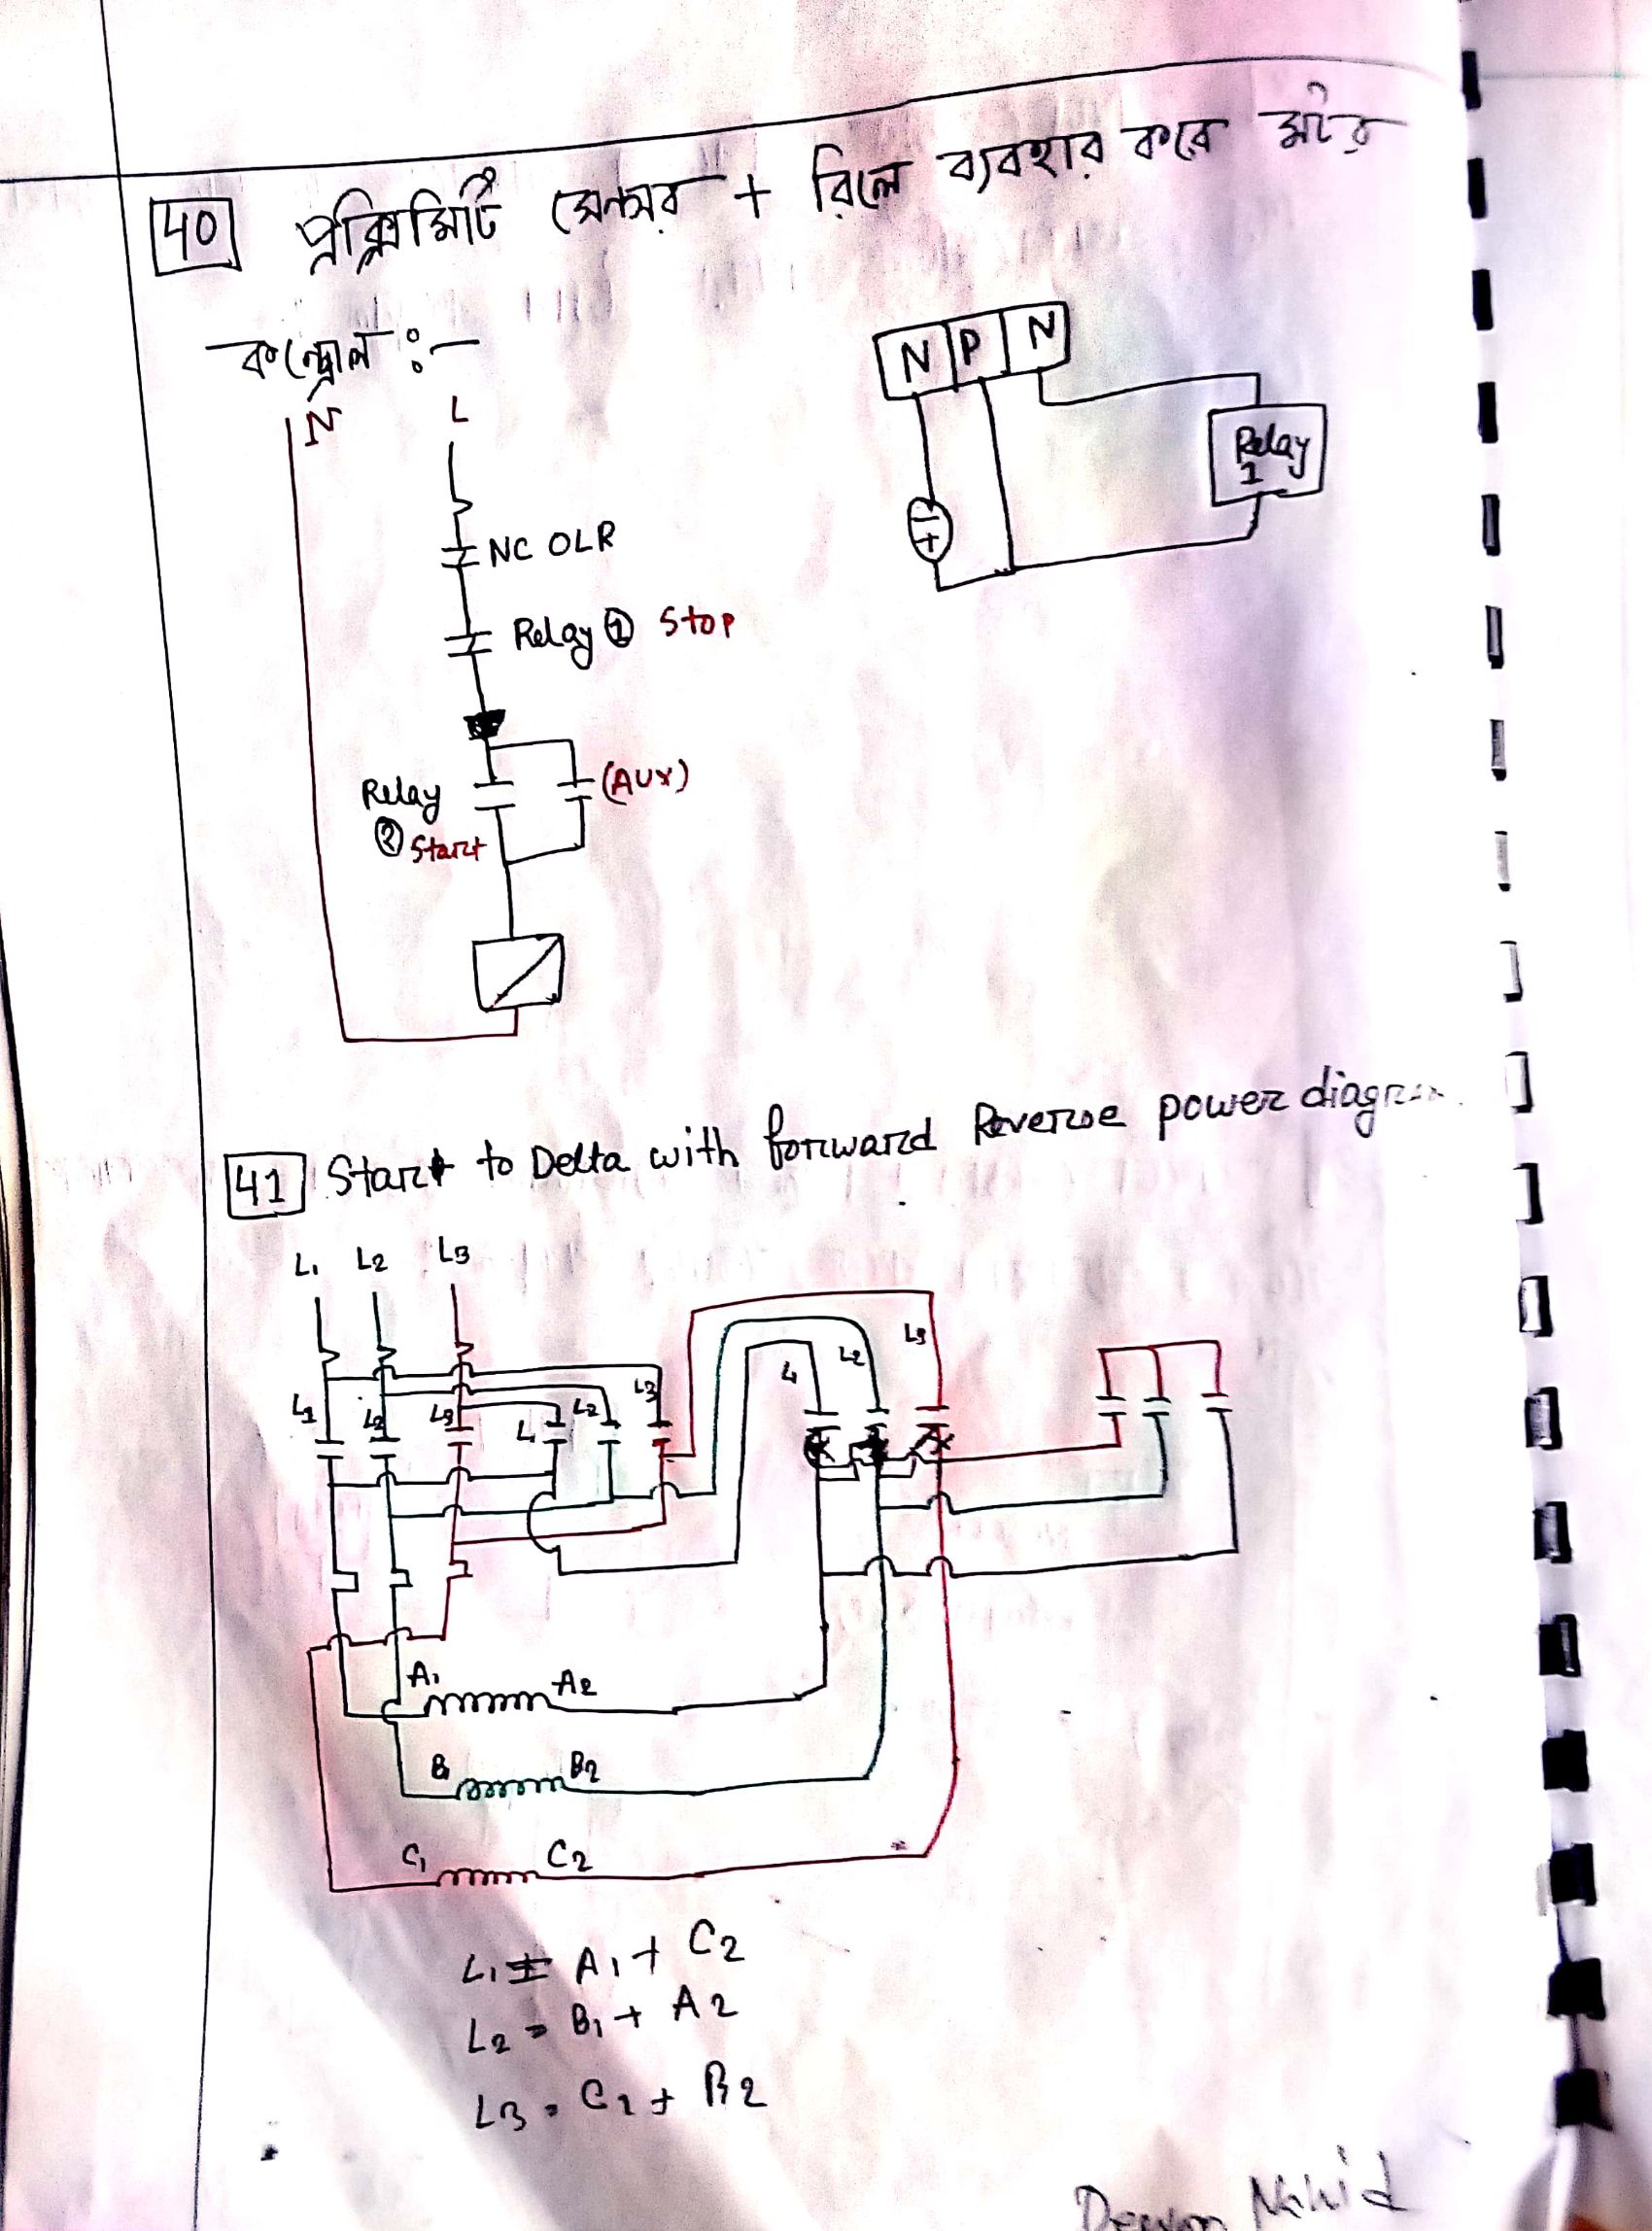 40 প্রক্সিমিটি সেন্সর + রিলে ব্যবহার করে মটর
কন্ট্রোল :-
N L
N P N
Relay 1
NC OLR
Relay ① Stop
Relay ② Start
(AUX)
41 Start to Delta with forward Reverse power diagram
L1 L2 L3
L1 L2 L3 L L2 L3
L L2 L3
A1 A2
B B2
C1 C2
L1 = A1 + C2
L2 = B1 + A2
L3 = C1 + B2
Nahid